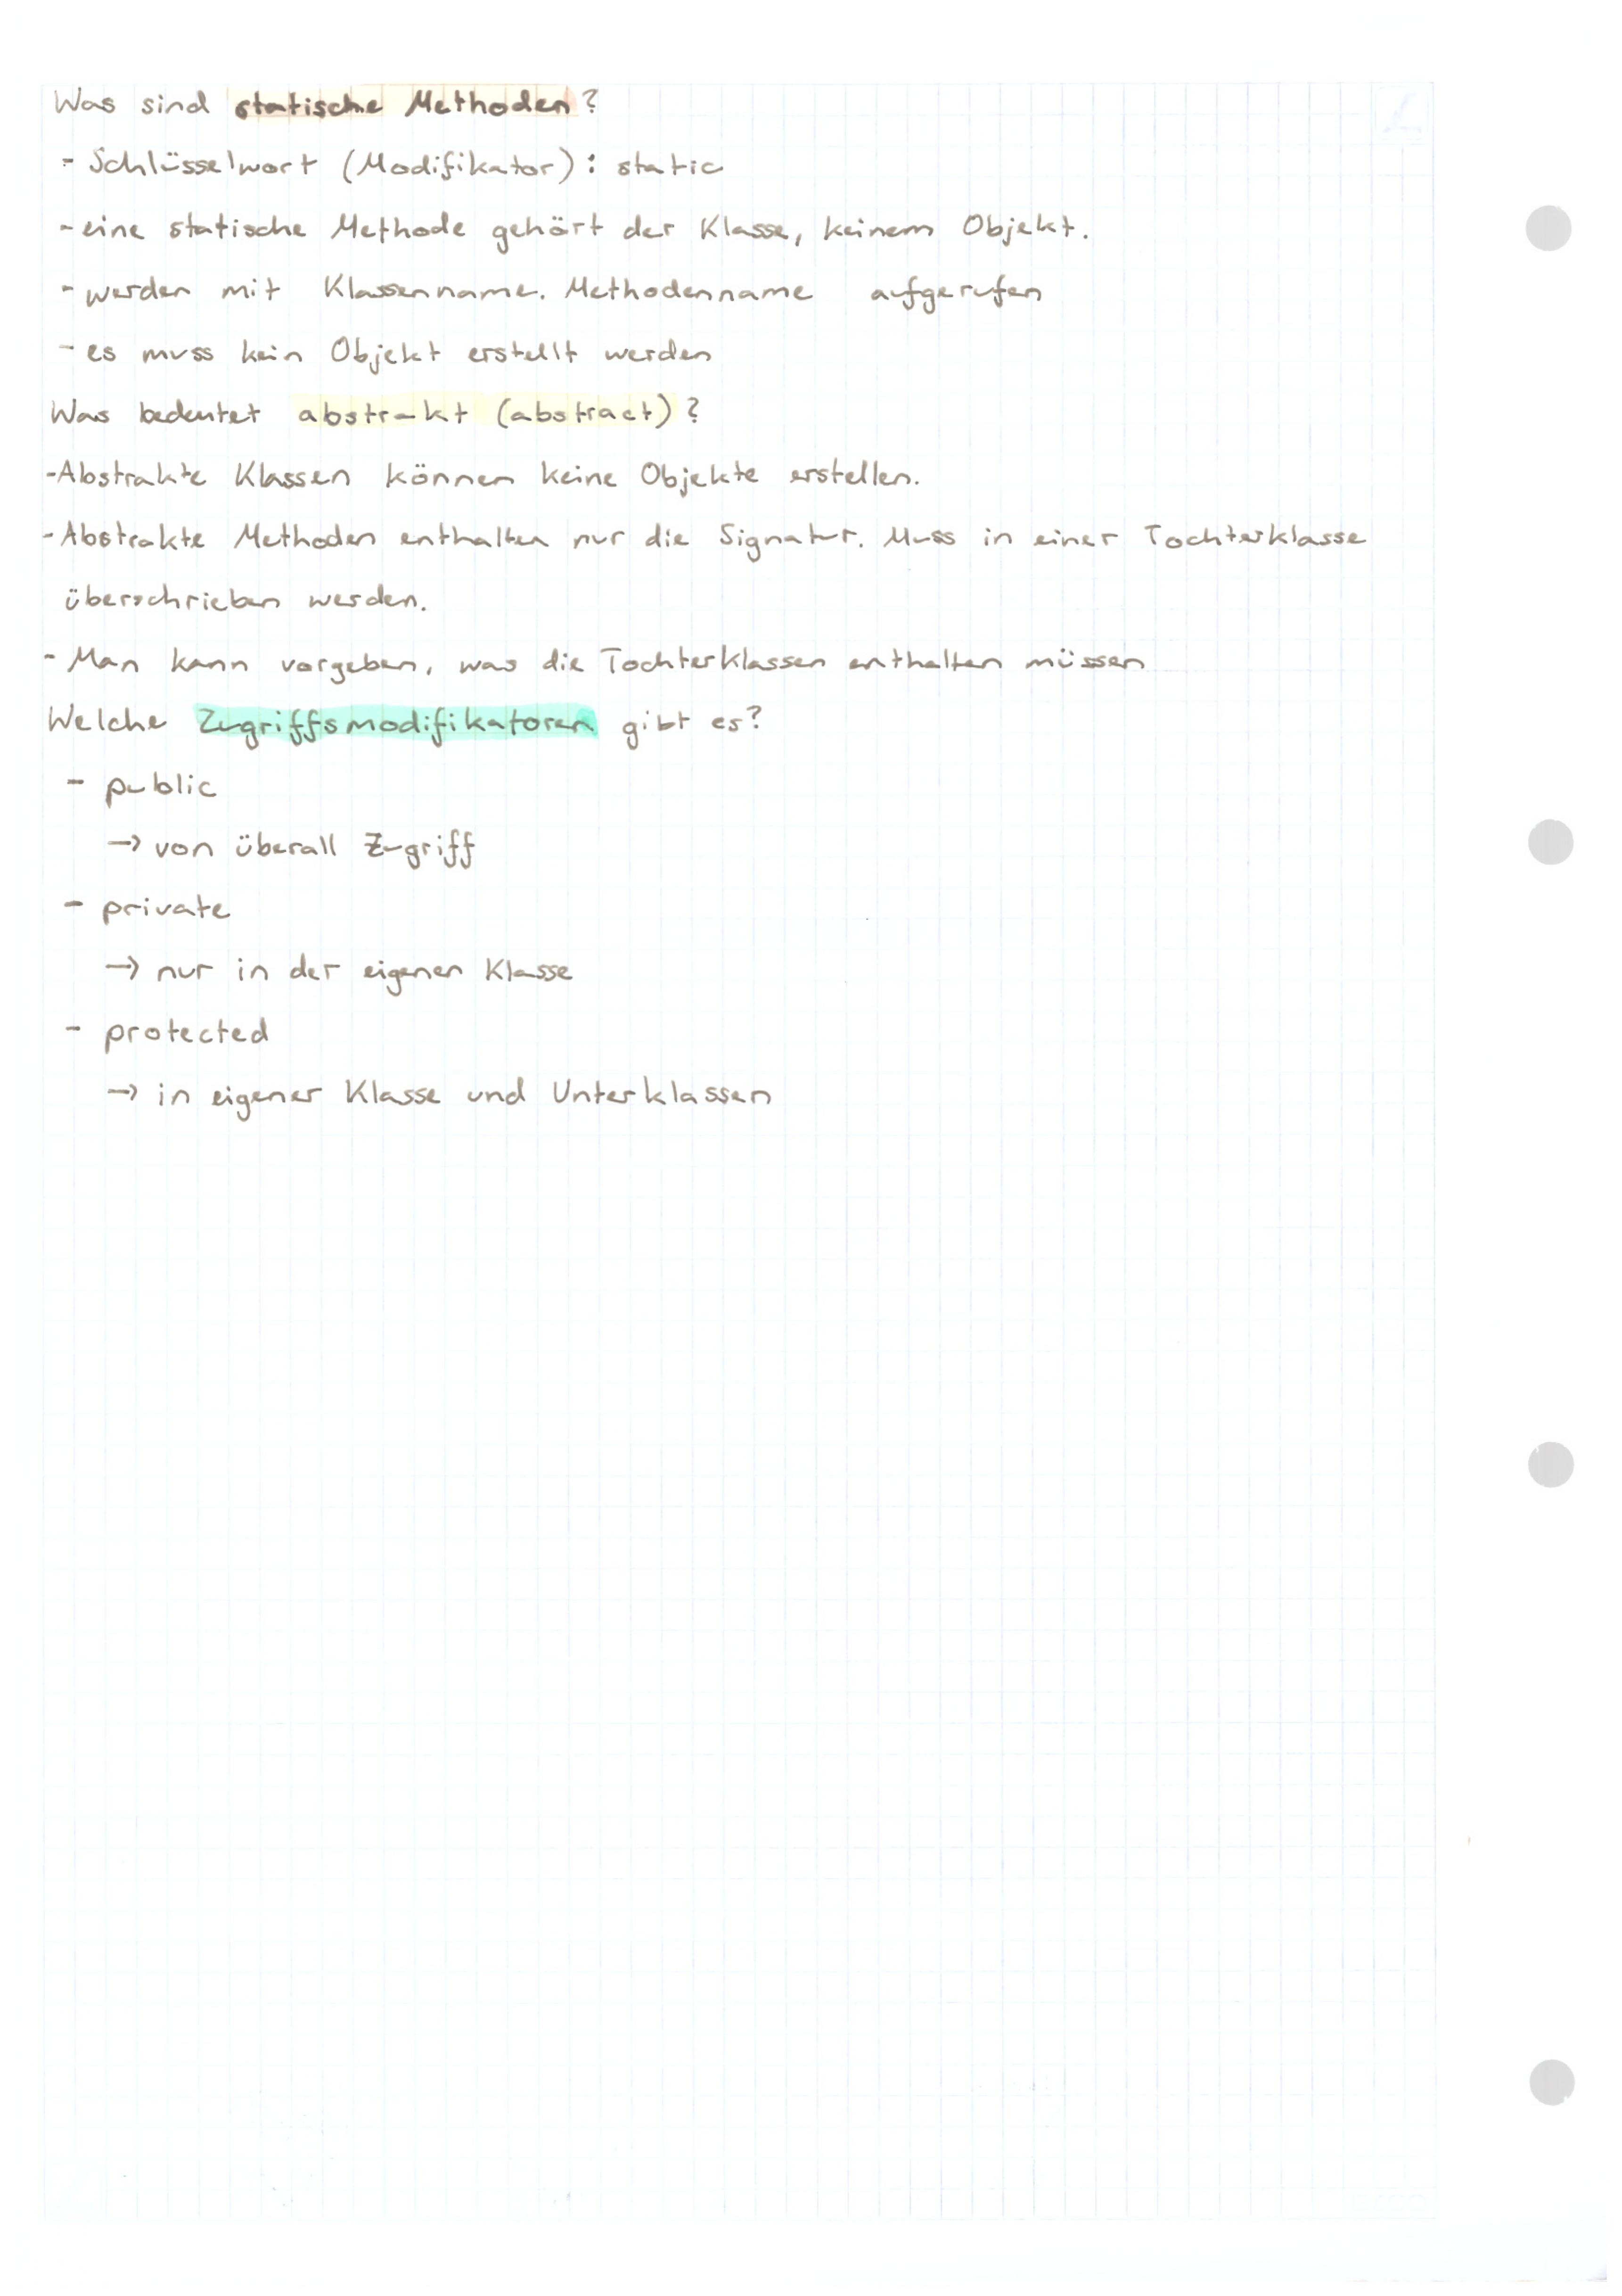 Was sind statische Methoden?
- Schlüsselwort (Modifikator): static
- eine statische Methode gehört der Klasse, keinem Objekt.
- werden mit Klassenname. Methodenname aufgerufen
- es muss kein Objekt erstellt werden
Was bedeutet abstrakt (abstract)?
- Abstrakte Klassen können keine Objekte erstellen.
- Abstrakte Methoden enthalten nur die Signatur. Muss in einer Tochterklasse
überschrieben werden.
- Man kann vorgeben, was die Tochterklassen enthalten müssen
Welche Zugriffsmodifikatoren gibt es?
- public
→ von überall Zugriff
- private
→ nur in der eigenen Klasse
- protected
→ in eigener Klasse und Unterklassen